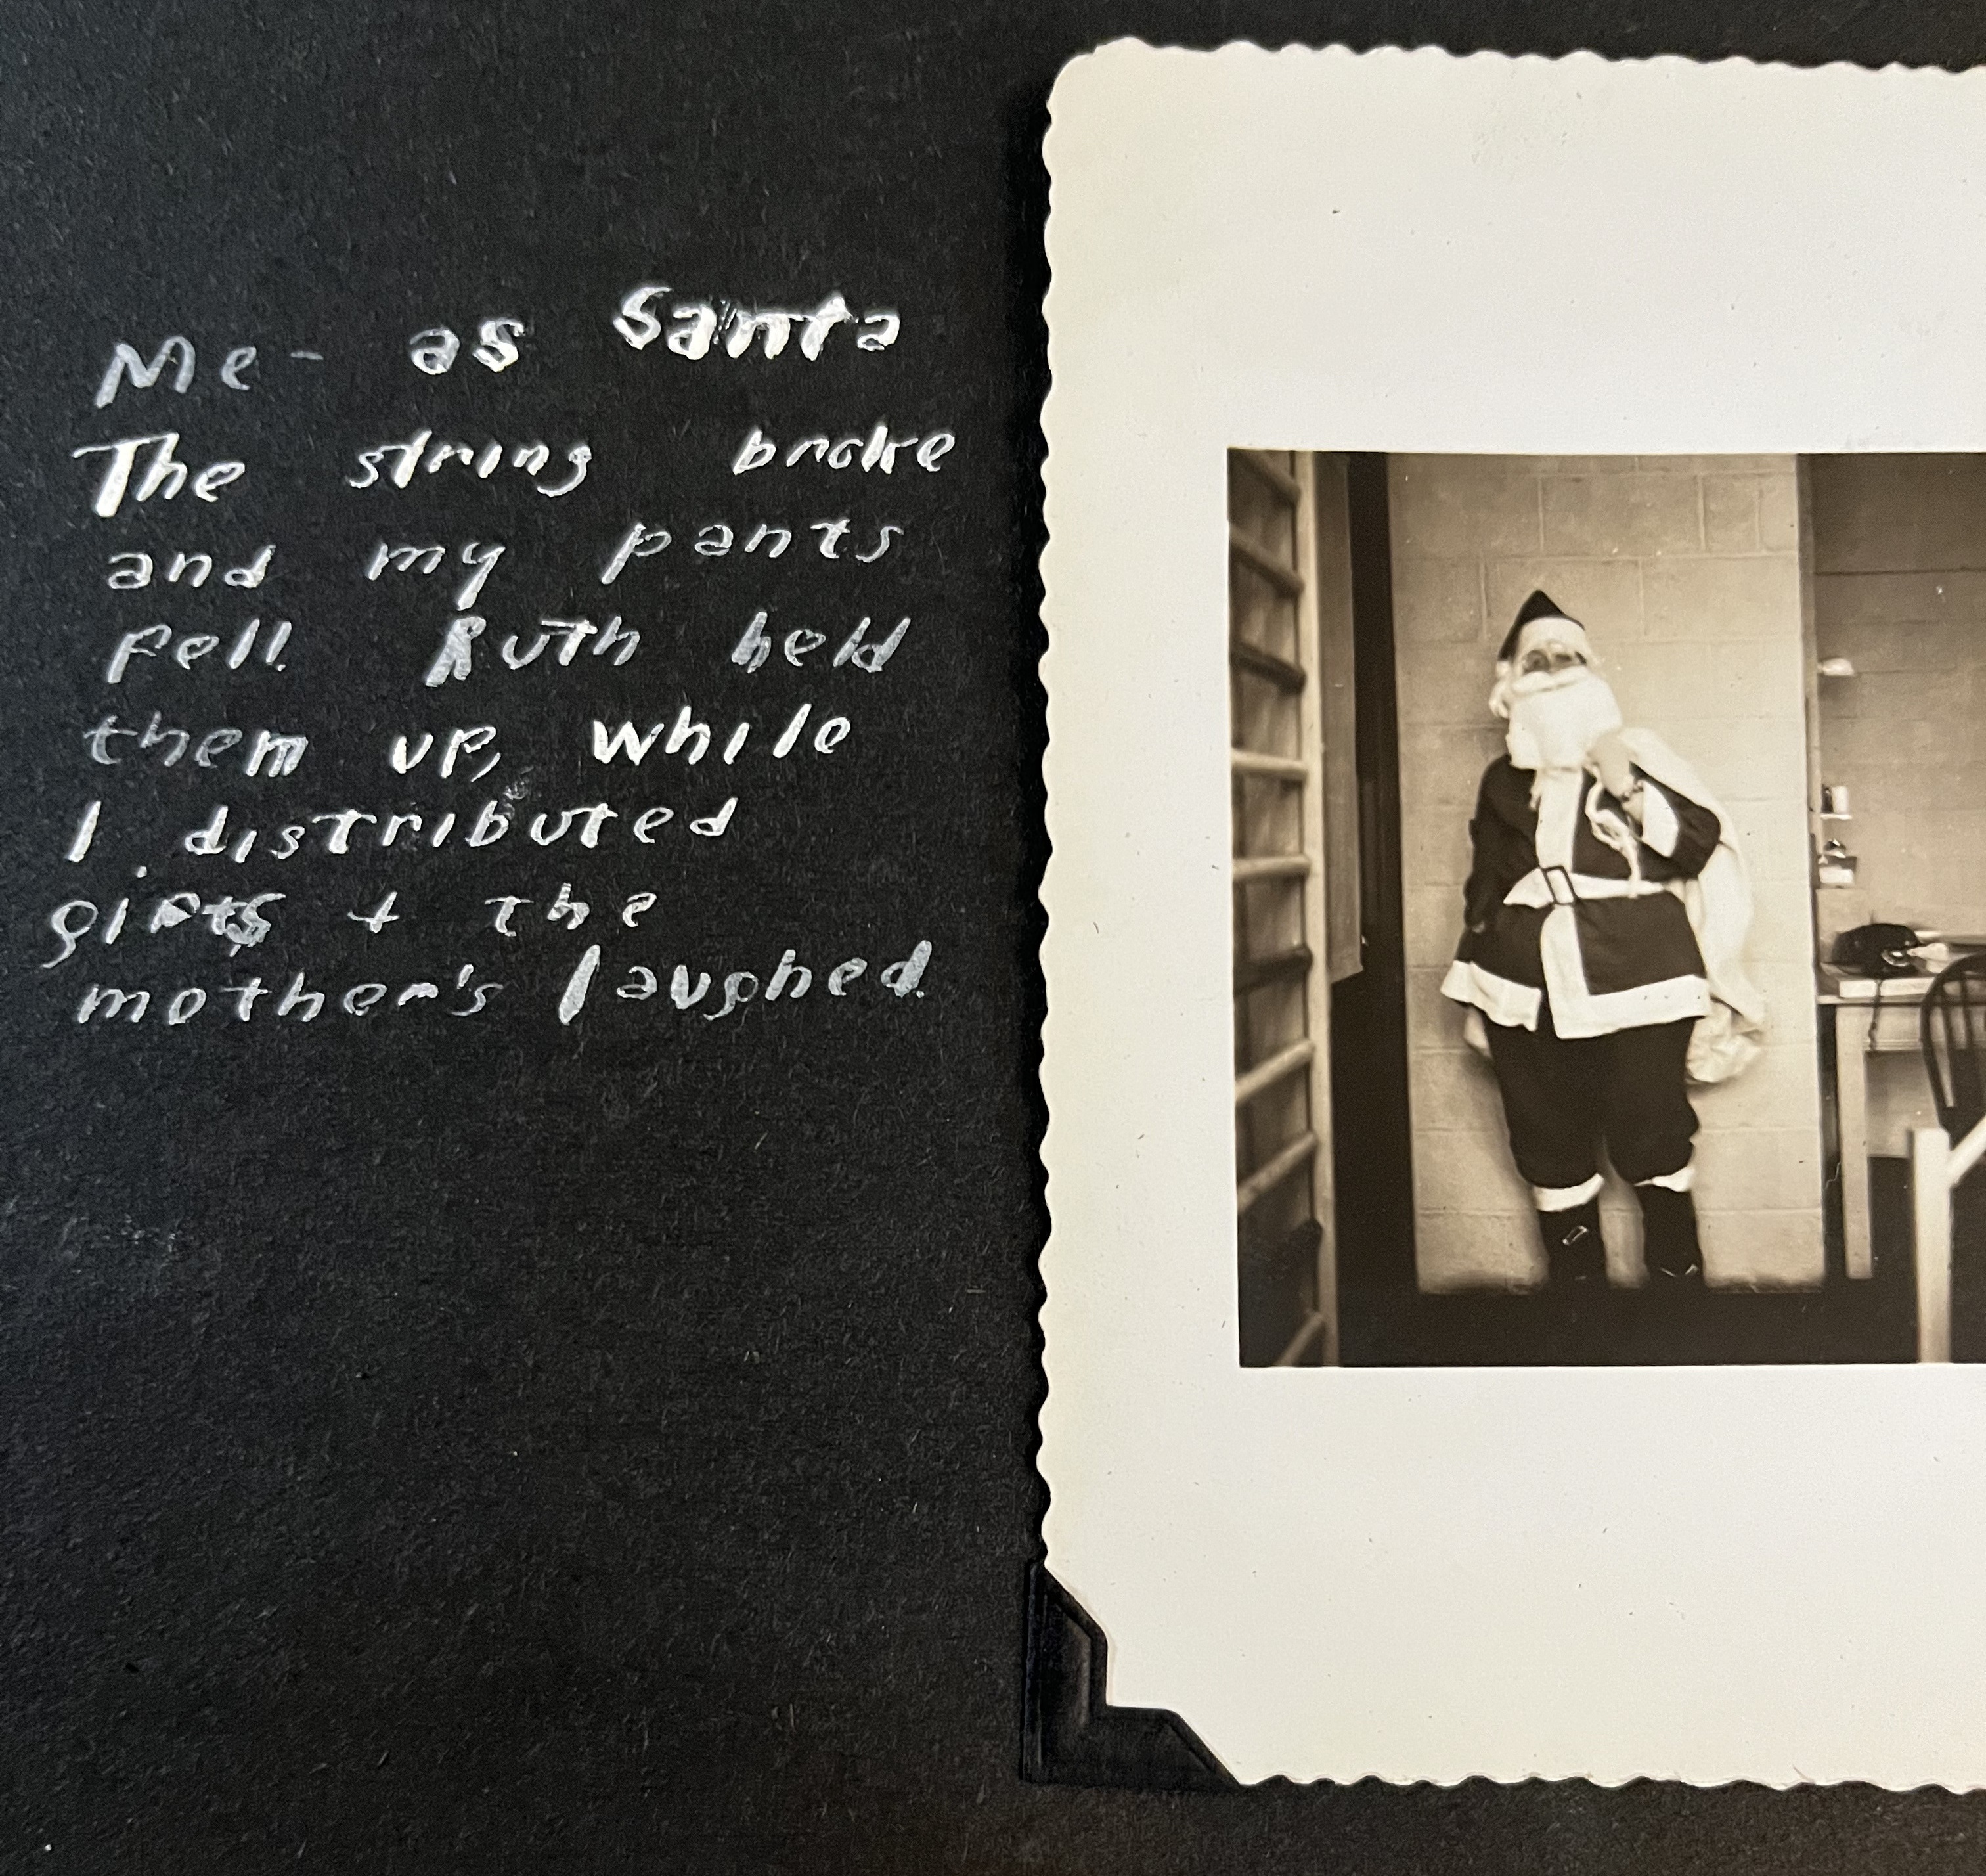 Me - as Santa
The string broke
and my pants
fell. Ruth held
them up, while
I distributed
gifts + the
mother's laughed.